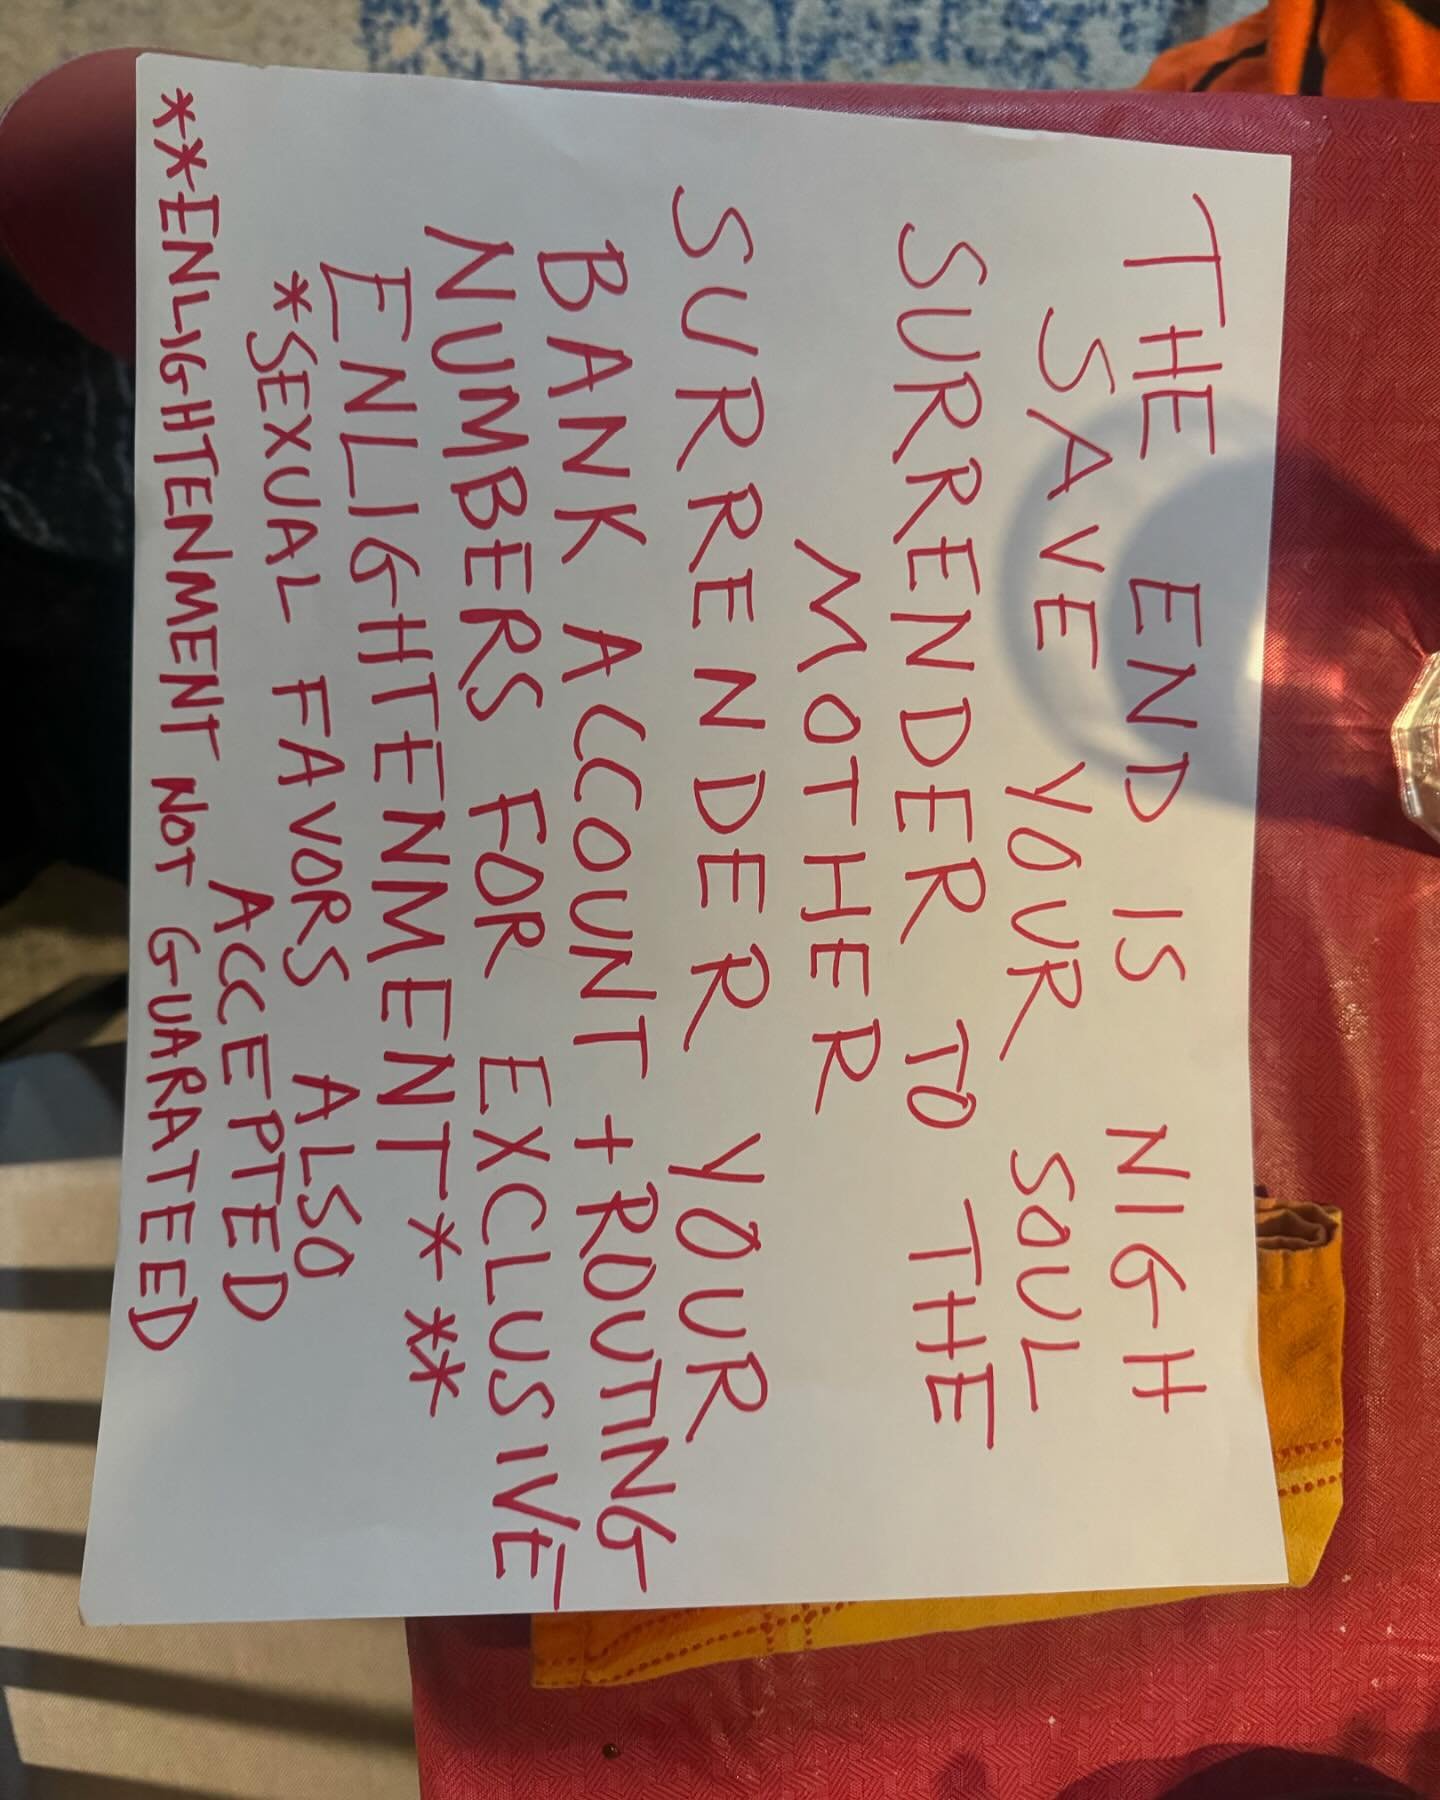 THE END IS NIGH
SAVE YOUR SOUL
SURRENDER TO THE
MOTHER
SURRENDER YOUR
BANK ACCOUNT + ROUTING
NUMBERS FOR EXCLUSIVE
ENLIGHTENMENT* **
*SEXUAL FAVORS ALSO
ACCEPTED
**ENLIGHTENMENT NOT GUARATEED